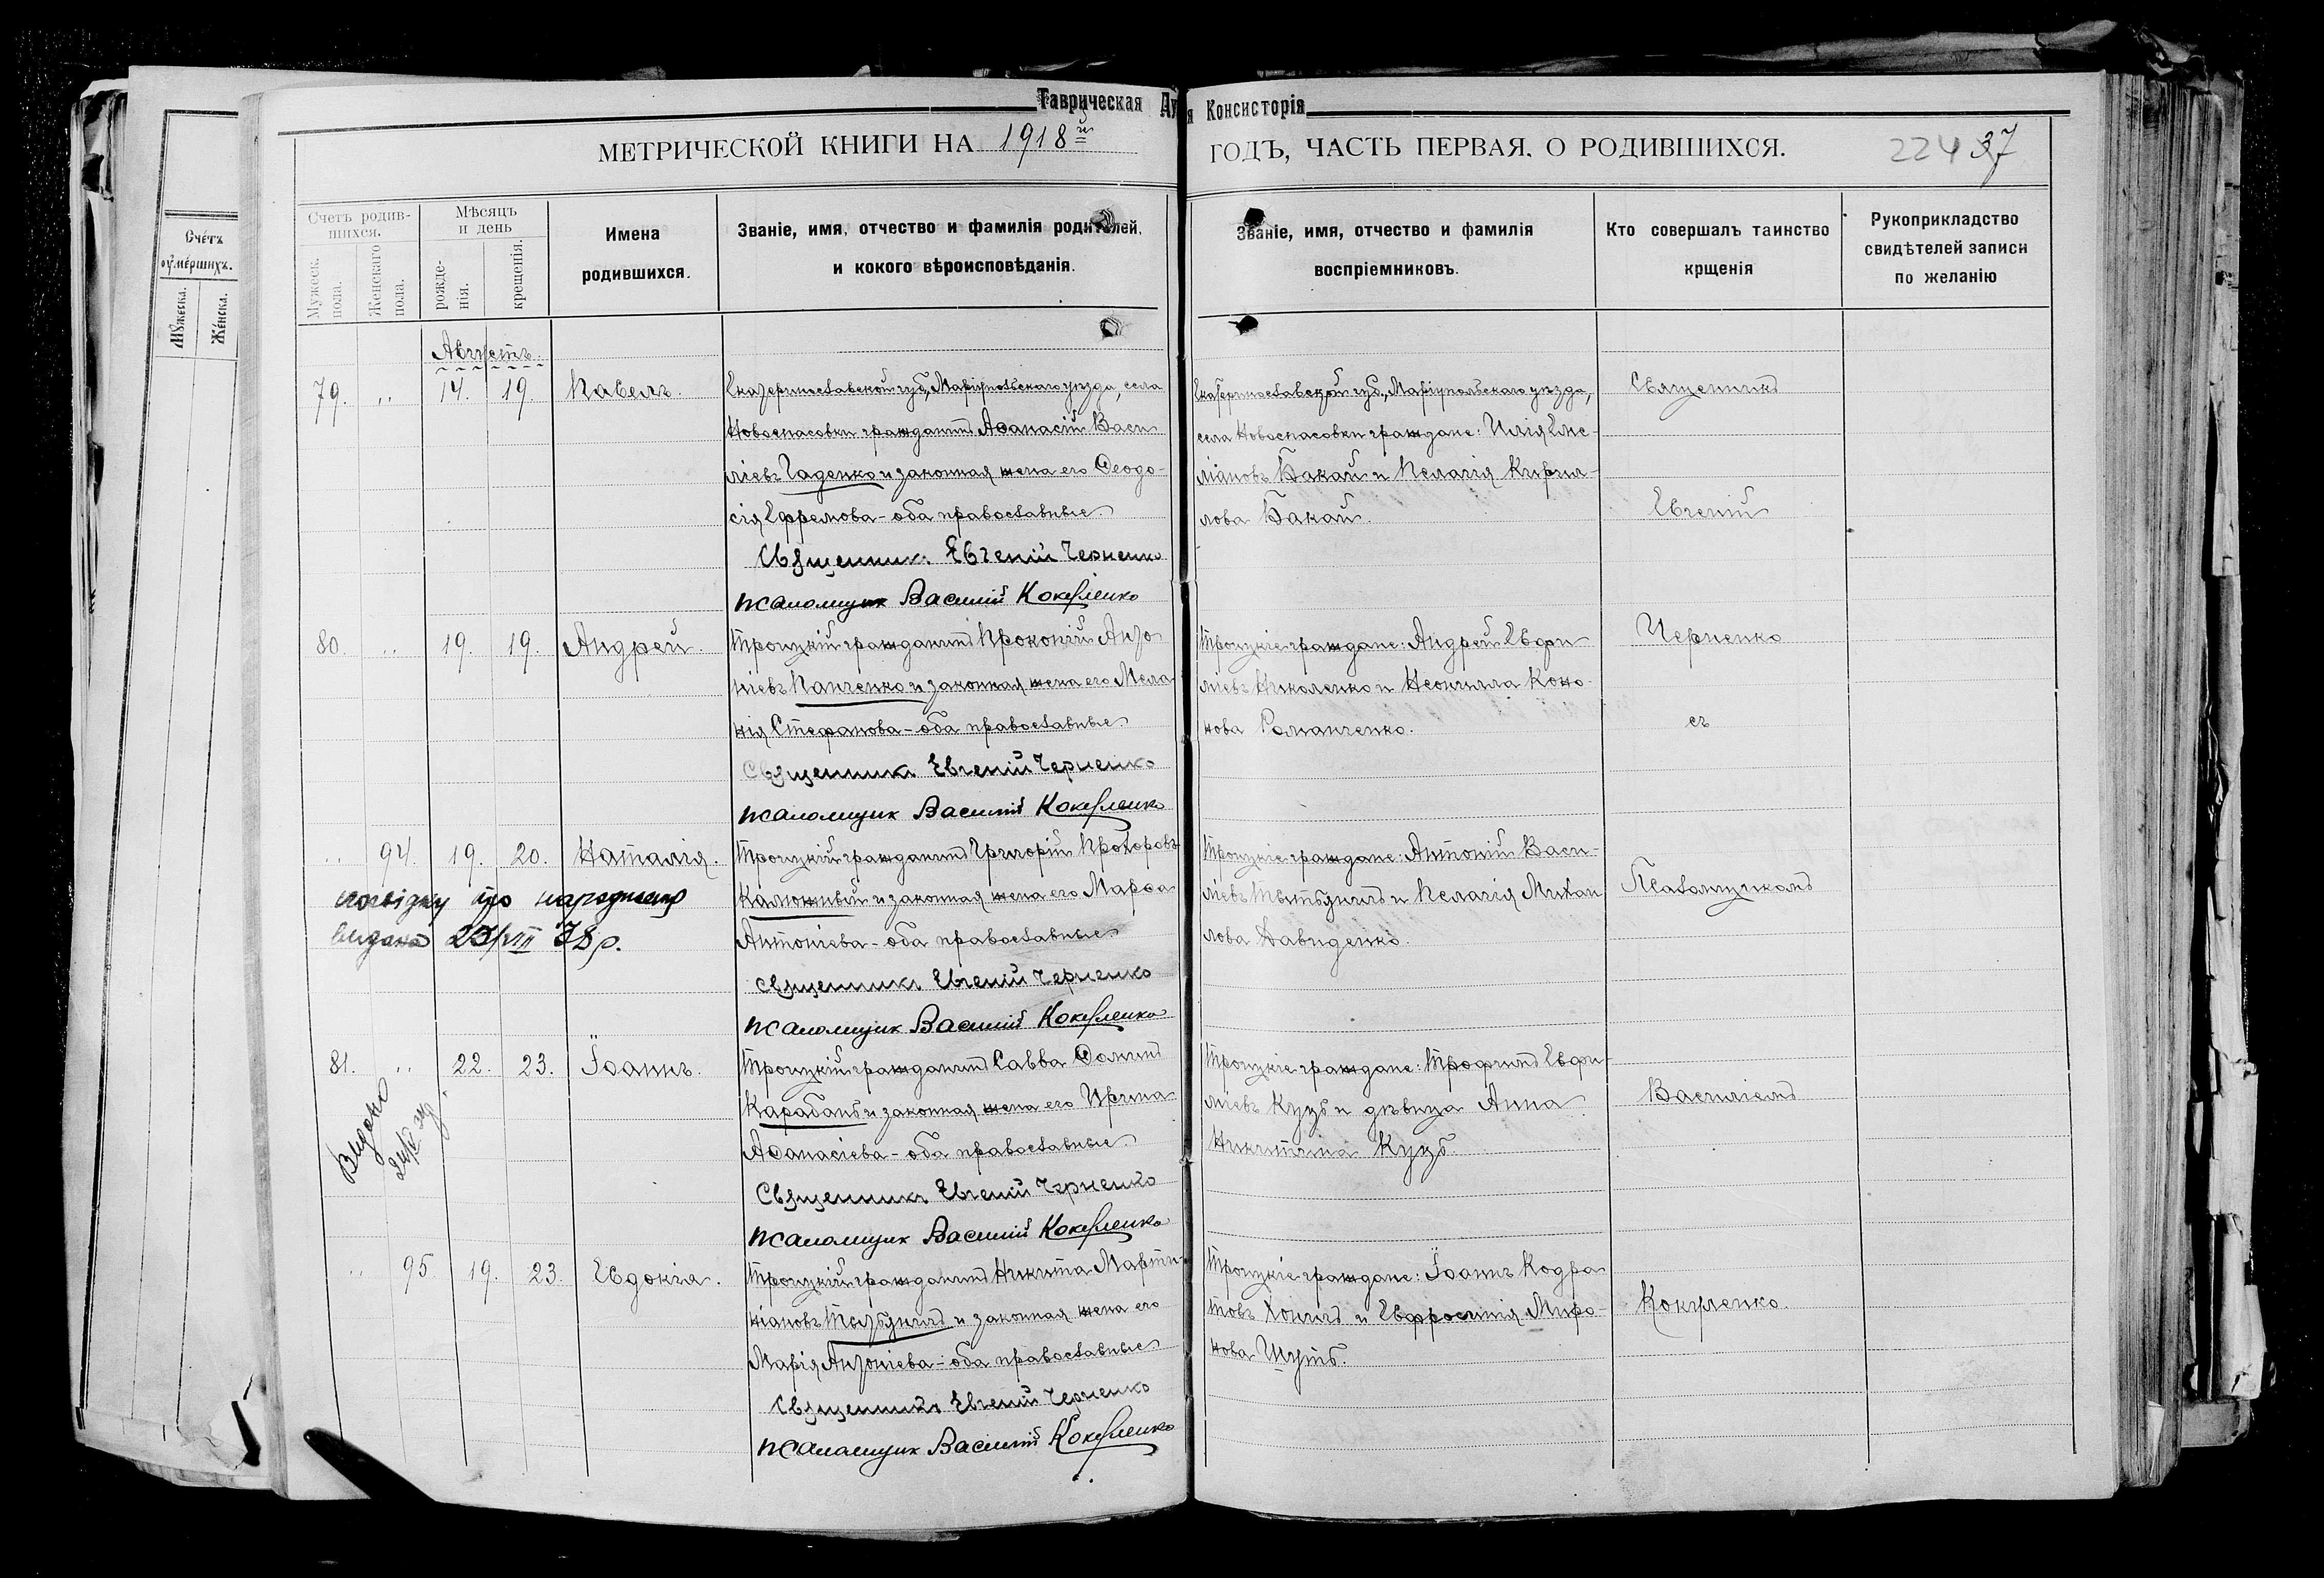 Таврическая Ду
я Консисторія
МЕТРИЧЕСКОЙ КНИГИ НА 1918й
ГОДЪ, ЧАСТЬ ПЕРВАЯ, О РОДИВШИХСЯ.
224 37
Счетъ умершихъ.
Мужеска.
Женска.
Счетъ родив-
шихся.
Мужеск. пола.
Женскаго пола.
Мѣсяцъ
и день
рожде-
нія.
крещенія.
Имена
родившихся.
Званіе, имя, отчество и фамилія родителей,
и кокого вѣроисповѣданія.
Званіе, имя, отчество и фамилія
воспріемниковъ.
Кто совершалъ таинство
крщенія
Рукоприкладство
свидѣтелей записи
по желанію
Августъ.
79. " 14. 19. Павелъ.
Екатеринославской губ., Маріупольскаго уѣзда, села
Новоспасовки гражданинъ Аѳанасій Васи
ліевъ Гаденко и законная жена его Ѳеодо-
сія Ефремова - оба православные
Священникъ Евгеній Черненко
псаломщик Василій Кокуленко
Екатеринославской губ., Маріупольскаго уѣзда,
села Новоспасовки граждане: Илія Еме-
ліановъ Бакай и Пелагія Кирил-
лова Бакай.
Священникъ
Евгеній
Черненко
съ
Псаломщикомъ
Василіемъ
Кокуленко.
80. " 19. 19. Андрей.
Троицкій гражданинъ Прокопій Анто
ніевъ Панченко и законная жена его Мела
нія Стефанова - оба православные
Священникъ Евгеній Черненко
псаломщик Василій Кокуленко
Троицкіе граждане: Андрей Евфи
міевъ Николенко и Неонилла Коно
нова Романченко.
" 94. 19. 20. Наталія.
Троицкій гражданинъ Григорій Прохоровъ
Калюжный и законная жена его Марѳа
Антоніева - оба православные
священникъ Евгеній Черненко
псаломщик Василій Кокуленко
посвідку про народження
видано 23/VIII 38 р.
Троицкіе граждане: Антоній Васи-
ліевъ и Пелагія Михаи
лова Давиденко.
81. " 22. 23. Іоаннъ.
Троицкій гражданинъ Савва Ѳоминъ
Карабань и законная жена его Ирина
Аѳанасіева - оба православные
Священникъ Евгеній Черненко
псаломщик Василій Кокуленко
Видано
Троицкіе граждане: Трофимъ Евфи-
міевъ Куцъ и дѣвица Анна
Никитина Куцъ.
" 95. 19. 23. Евдокія.
Троицкій гражданинъ Никита Марти-
ніановъ и законная жена его
Марія Антоніева - оба православные
Священникъ Евгеній Черненко
псаломщик Василій Кокуленко
Троицкіе граждане: Іоаннъ Кодра
товъ и Евфросинія Миро-
нова Шутъ.